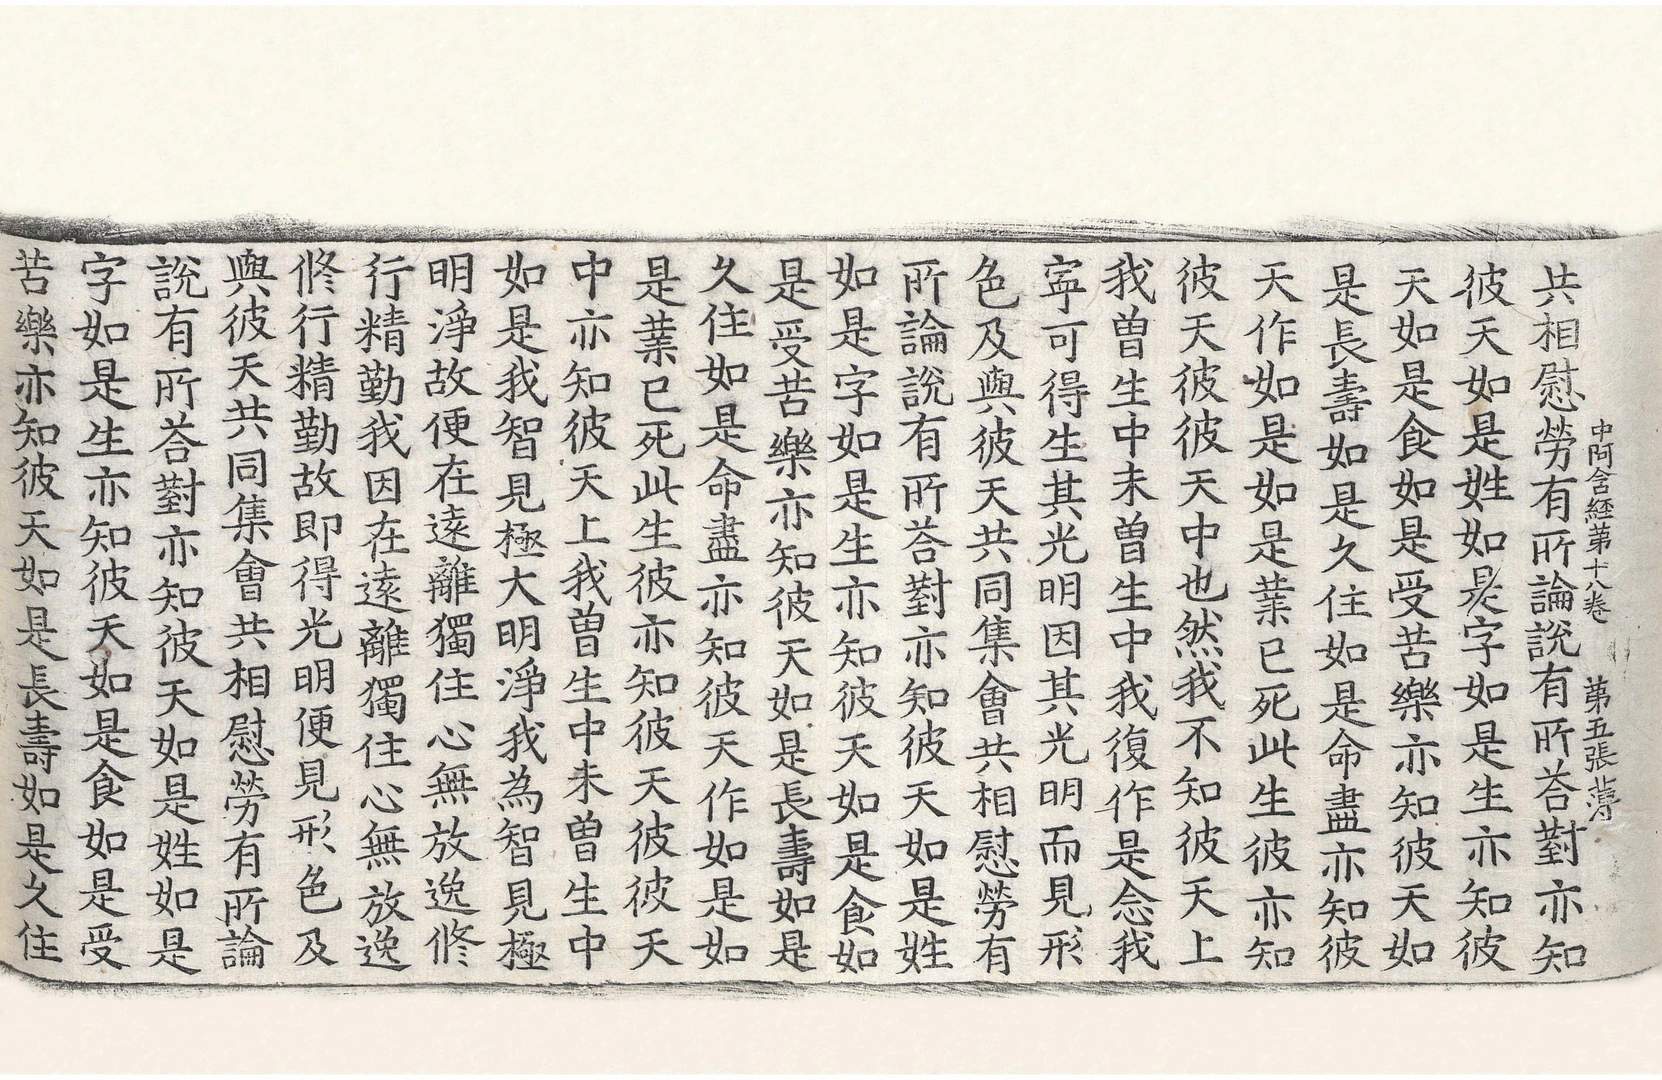 中阿含経第十八卷 第五張 薄
共相慰勞有所論說有所荅對亦知
彼天如是姓如是字如是生亦知彼
天如是食如是受苦樂亦知彼天如
是長壽如是久住如是命盡亦知彼
天作如是如是業已死此生彼亦知
彼天彼彼天中也然我不知彼天上
我曾生中未曾生中我復作是念我
寧可得生其光明因其光明而見形
色及與彼天共同集會共相慰勞有
所論說有所荅對亦知彼天如是姓
如是字如是生亦知彼天如是食如
是受苦樂亦知彼天如是長壽如是
久住如是命盡亦知彼天作如是如
是業已死此生彼亦知彼天彼彼天
中亦知彼天上我曾生中未曾生中
如是我智見極大明淨我為智見極
明淨故便在遠離獨住心無放逸修
行精勤我因在遠離獨住心無放逸
修行精勤故即得光明便見形色及
與彼天共同集會共相慰勞有所論
說有所荅對亦知彼天如是姓如是
字如是生亦知彼天如是食如是受
苦樂亦知彼天如是長壽如是久住